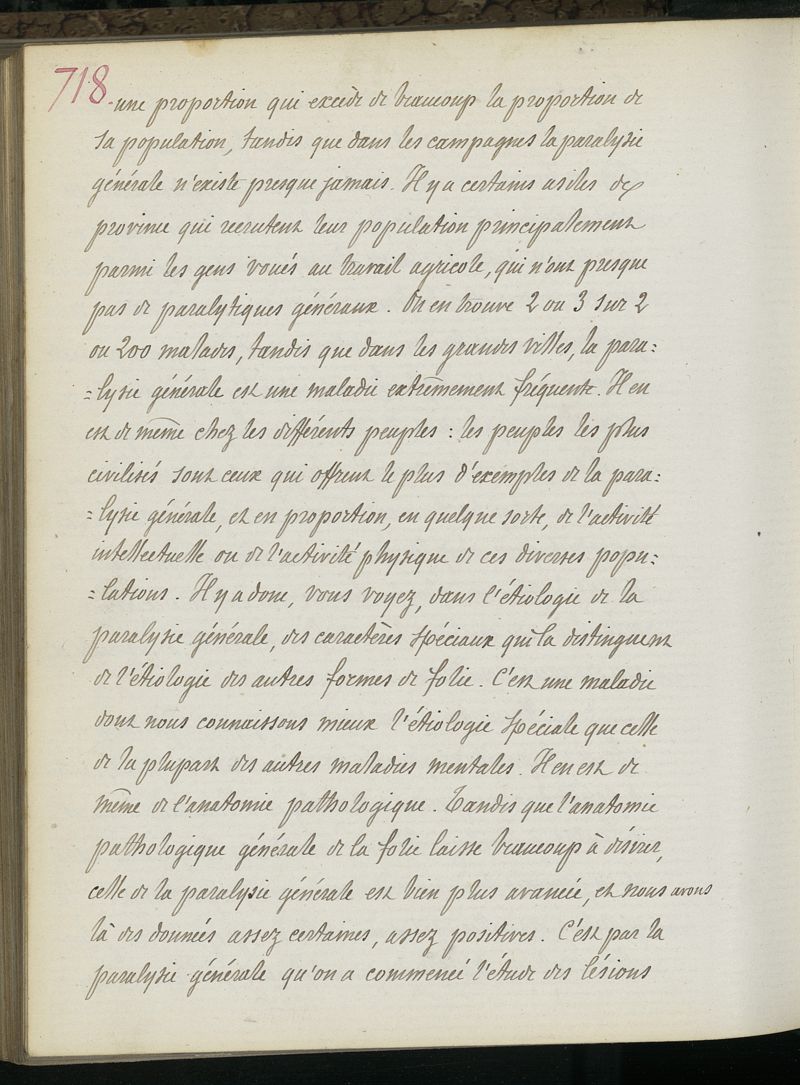 718
une proportion qui excède de beaucoup la proportion de
sa population, tandis que dans les campagnes la paralysie
générale n'existe presque jamais. Il y a certains asiles de
province qui recrutent leur population principalement
parmi les gens voués au travail agricole, qui n'ont presque
pas de paralytiques généraux. On en trouve 2 ou 3 sur 2
ou 200 malades, tandis que dans les grandes villes, la para=
=lysie générale est une maladie extrêmement fréquente. Il en
est de même chez les différents peuples : les peuples les plus
civilisés sont ceux qui offrent le plus d'exemples de la para=
=lysie générale, et en proportion, en quelque sorte, de l'activité
intellectuelle ou de l'activité physique de ces diverses popu=
=lations. Il y a donc, vous voyez, dans l'étiologie de la
paralysie générale, des caractères spéciaux qui la distinguent
de l'étiologie des autres formes de folie. C'est une maladie
dont nous connaissons mieux l'étiologie spéciale que celle
de la plupart des autres maladies mentales. Il en est de
même de l'anatomie pathologique. Tandis que l'anatomie
pathologique générale de la folie laisse beaucoup à désirer,
celle de la paralysie générale est bien plus avancée, et nous avons
là des données assez certaines, assez positives. C'est par la
paralysie générale qu'on a commencé l'étude des lésions